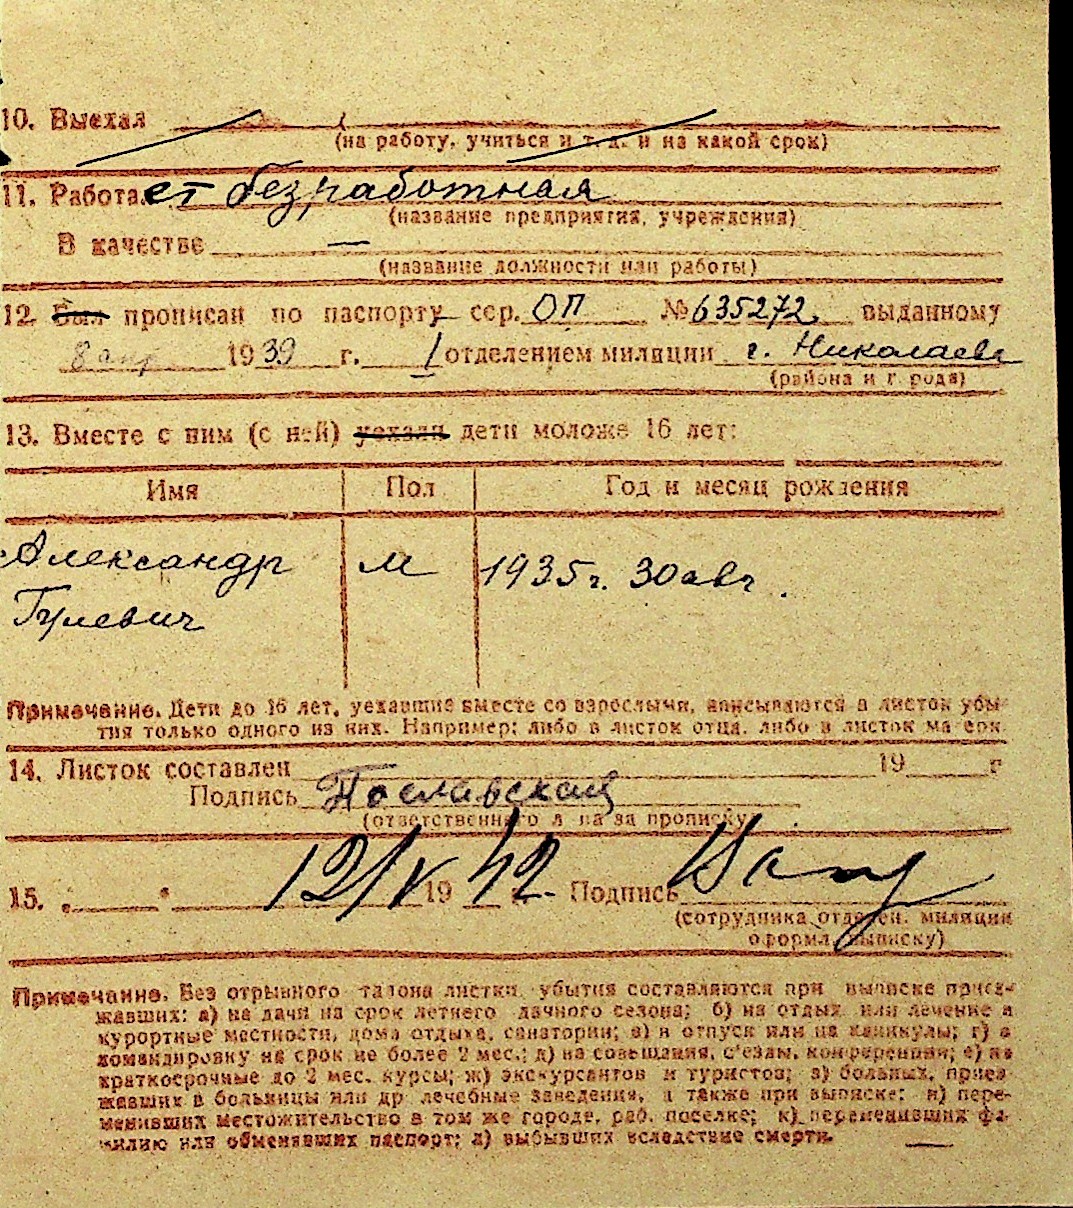 10. Выехал
(на работу, учиться и т. д. и на какой срок)
11. Работает безработная
(название предприятия, учреждения)
В качестве —
(название должности или работы)
12. Был прописан по паспорту сер. ОП № 635272 выданному
8 апр 1939 г. 1 отделением милиции г. Николаева
(района и города)
13. Вместе с ним (с ней) уехали дети моложе 16 лет:
Имя Пол Год и месяц рождения
Александр м 1935 г. 30 авг.
Гулевич
Примечание. Дети до 16 лет, уехавшие вместе со взрослыми, вписываются в листок убы-
тия только одного из них. Например: либо в листок отца, либо в листок матери.
14. Листок составлен 19 г
Подпись
(ответственного лица за прописку)
15. „ " 12/V 1942 Подпись
(сотрудника отделен. милиции
оформл. выписку)
Примечание. Без отрывного талона листки убытия составляются при выписке приез-
жавших: а) на дачи на срок летнего дачного сезона; б) на отдых или лечение в
курортные местности, дома отдыха, санатории; в) в отпуск или на каникулы; г) в
командировку на срок не более 2 мес.; д) на совещания, съезды, конференции; е) на
краткосрочные до 2 мес. курсы; ж) экскурсантов и туристов; з) больных, приез-
жавших в больницы или др лечебные заведения, а также при выписке: и) пере-
менивших местожительство в том же городе, раб. поселке; к) переменивших фа-
милию или обменявших паспорт; л) выбывших вследствие смерти.